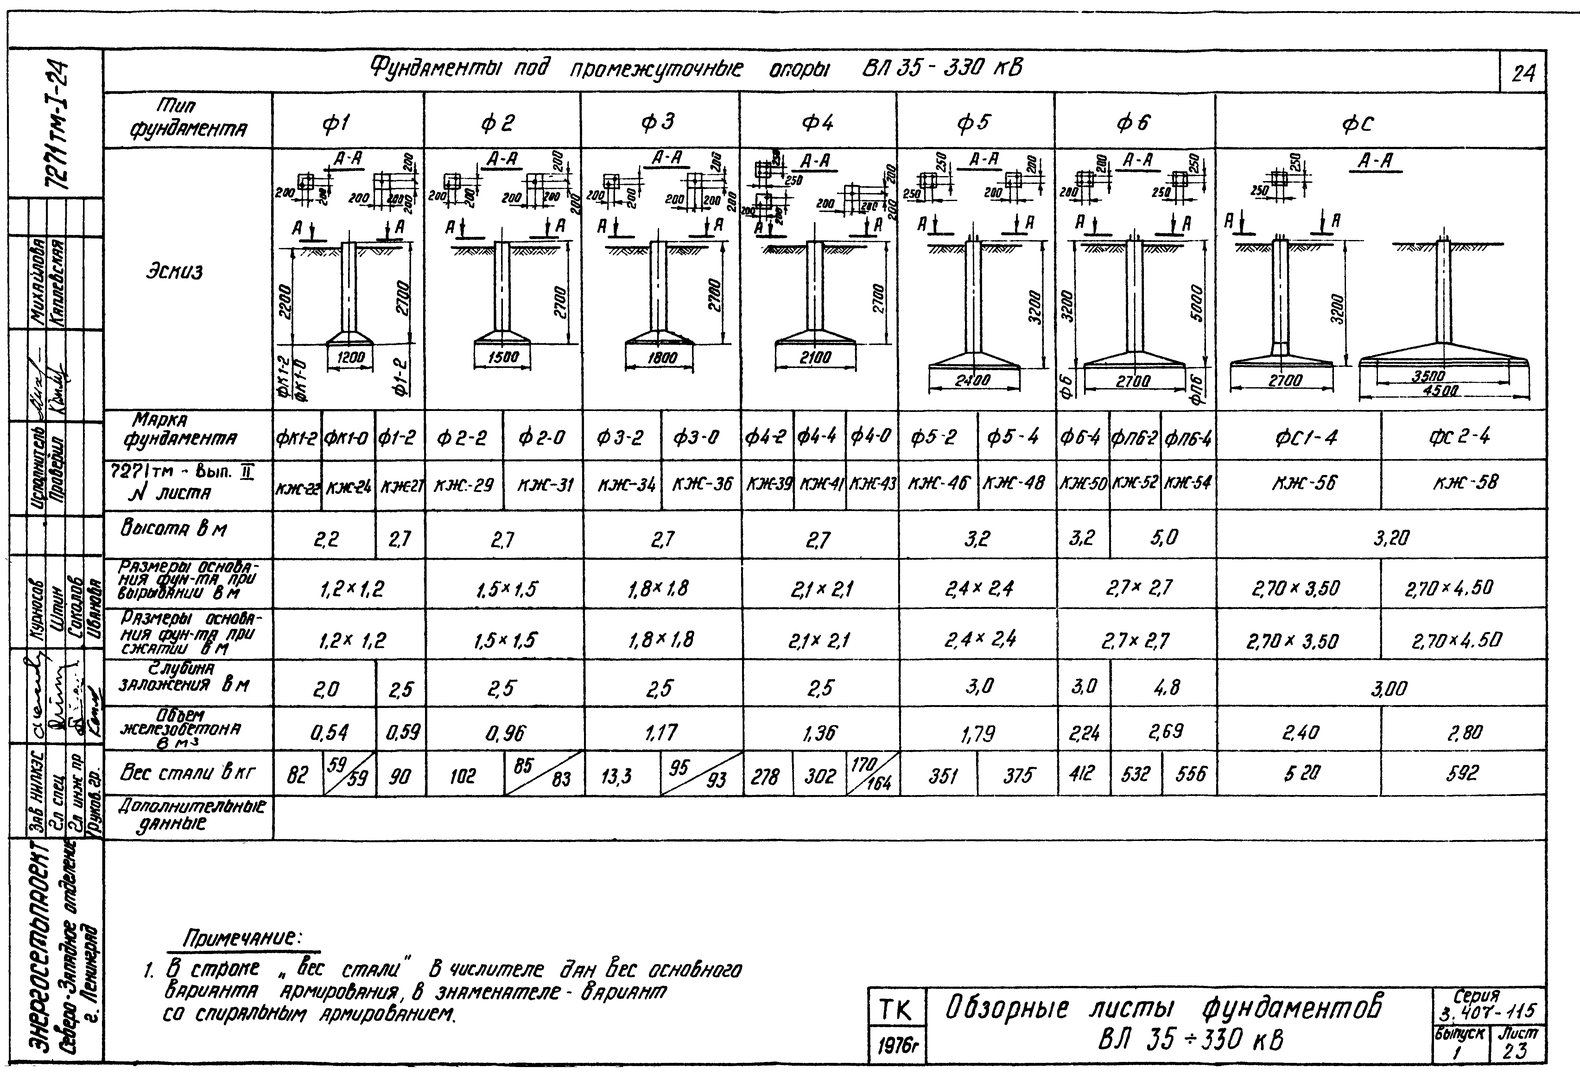 Фундаменты под промежуточные опоры ВЛ 35 - 330 кВ
24
7271тм-I-24
Тип фундамента Ф1 Ф2 Ф3 Ф4 Ф5 Ф6 ФС
Эскиз
А-А А-А А-А А-А А-А А-А А-А
200 200 200 200 200
200 200 200 200 200
200 200 200 200 200
250 250 200 200 200 200 200
250 250 200 200
200 200 250 250
250 250
А А
А А
А А
А А
А А
А А
А А
2200 2700 1200 ФК1-2 ФК1-0 Ф1-2
2700 1500
2700 1800
2700 2100
3200 2400
3200 5000 2700 Ф6 ФП6
3200 2700 3500 4500
Марка фундамента ФК1-2 ФК1-0 Ф1-2 Ф2-2 Ф2-0 Ф3-2 Ф3-0 Ф4-2 Ф4-4 Ф4-0 Ф5-2 Ф5-4 Ф6-4 ФП6-2 ФП6-4 ФС1-4 ФС2-4
7271тм - вып. II
N листа КЖ-22 КЖ-24 КЖ-27 КЖ-29 КЖ-31 КЖ-34 КЖ-36 КЖ-39 КЖ-41 КЖ-43 КЖ-46 КЖ-48 КЖ-50 КЖ-52 КЖ-54 КЖ-56 КЖ-58
Высота в м 2,2 2,7 2,7 2,7 2,7 3,2 3,2 5,0 3,20
Размеры основа-
ния фун-та при
вырывании в м 1,2×1,2 1,5×1,5 1,8×1,8 2,1×2,1 2,4×2,4 2,7×2,7 2,70×3,50 2,70×4.50
Размеры основа-
ния фун-та при
сжатии в м 1,2×1,2 1,5×1,5 1,8×1,8 2,1×2,1 2,4×2,4 2,7×2,7 2,70×3,50 2,70×4.50
Глубина
заложения в м 2,0 2,5 2,5 2,5 2,5 3,0 3,0 4,8 3,00
Объем
железобетона
в м3 0,54 0,59 0,96 1,17 1,36 1,79 2,24 2,69 2,40 2,80
Вес стали в кг 82 59/59 90 102 85/83 13,3 95/93 278 302 170/164 351 375 412 532 556 520 592
Дополнительные
данные
Примечание:
1. В строке „вес стали" в числителе дан вес основного
варианта армирования, в знаменателе - вариант
со спиральным армированием.
ТК
1976г
Обзорные листы фундаментов
ВЛ 35 ÷ 330 кВ
Серия
3.407-115
Выпуск
1
Лист
23
Исполнитель Михайлова
Проверил Каплевская
Зав НИЛКЭС Курносов
Гл спец Штин
Гл инж пр Соколов
Руков. гр. Иванова
Энергосетьпроект
Северо-Западное отделение
г. Ленинград